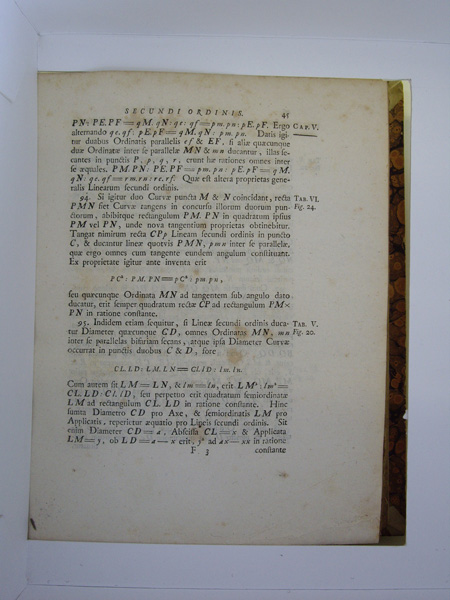 SECUNDI ORDINIS. 45
PN: PE.PF=qM.qN: qe: qf=pm.pn: pE.pF. Ergo CAP. V.
alternando qe.qf: pE.pF=qM.qN: pm.pn. Datis igi-
tur duabus Ordinatis parallelis ef & EF, si aliæ quæcunque
duæ Ordinatæ inter se parallelæ MN & mn ducantur, illas se-
cantes in punctis P, p, q, r, erunt hæ rationes omnes inter
se æquales. PM.PN: PE.PF=pm.pn: pE.pF=qM.
qN: qe.qf=rm.rn: re.rf. Quæ est altera proprietas gene-
ralis Linearum secundi ordinis.
94. Si igitur duo Curvæ puncta M & N coincidant, recta TAB. VI.
PMN fiet Curvæ tangens in concursu illorum duorum pun- Fig. 24.
ctorum, abibitque rectangulum PM.PN in quadratum ipsius
PM vel PN, unde nova tangentium proprietas obtinebitur.
Tangat nimirum recta CPp Lineam secundi ordinis in puncto
C, & ducantur lineæ quotvis PMN, pmn inter se parallelæ,
quæ ergo omnes cum tangente eundem angulum constituant.
Ex proprietate igitur ante inventa erit
PC²: PM.PN=pC²: pm.pn,
seu quæcunque Ordinata MN ad tangentem sub angulo dato
ducatur, erit semper quadratum rectæ CP ad rectangulum PM×
PN in ratione constante.
95. Indidem etiam sequitur, si Lineæ secundi ordinis duca- TAB. V.
tur Diameter quæcunque CD, omnes Ordinatas MN, mn Fig. 20.
inter se parallelas bifariam secans, atque ipsa Diameter Curvæ
occurrat in punctis duobus C & D, fore
CL.LD: LM.LN=Cl.lD: lm.ln.
Cum autem sit LM=LN, & lm=ln, erit LM²: lm²=
CL.LD: Cl.lD, seu perpetuo erit quadratum semiordinatæ
LM ad rectangulum CL.LD in ratione constante. Hinc
sumta Diametro CD pro Axe, & semiordinatis LM pro
Applicatis, reperietur æquatio pro Lineis secundi ordinis. Sit
enim Diameter CD=a, Abscissa CL=x & Applicata
LM=y, ob LD=a—x erit y² ad ax—xx in ratione
F 3 constante